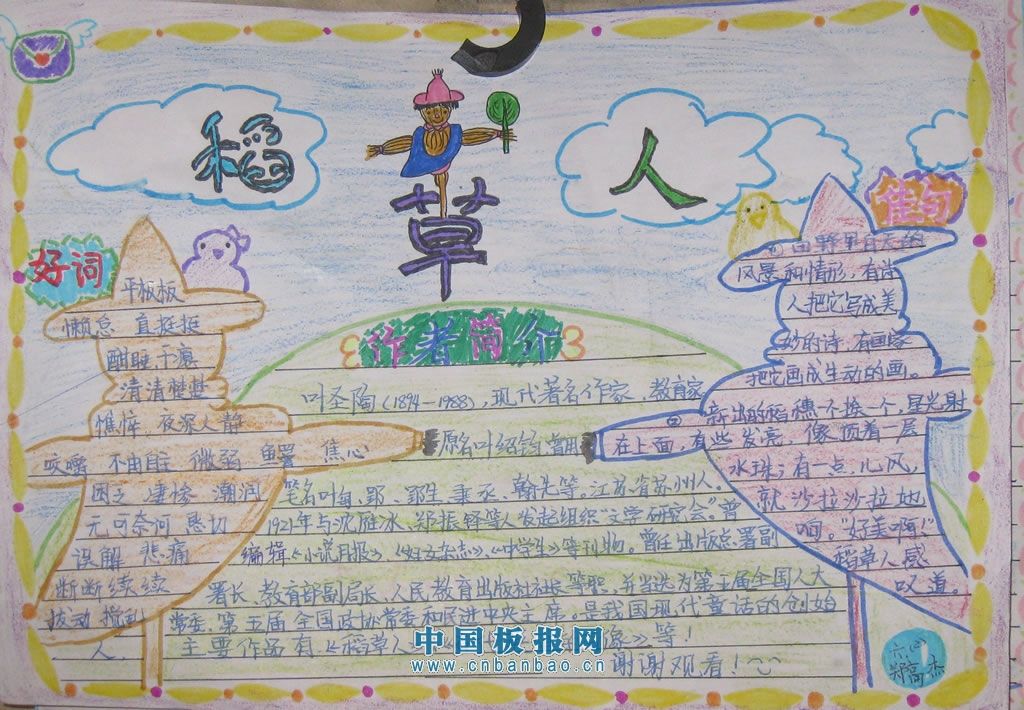 稻
草
人
好词
平板板
懒怠 直挺挺
酣睡 干瘪
清清楚楚
憔悴 夜深人静
咬嚼 不由自主 微弱 鱼罾 焦心
困乏 凄惨 潮润
无可奈何 恳切
误解 悲痛
断断续续
拨动
作者简介
叶圣陶(1894—1988),现代著名作家、教育家
原名叶绍钧,曾用
笔名叶匋、郢、郢生、秉丞、翰先等。江苏省苏州人。
1921年与沈雁冰、郑振铎等人发起组织“文学研究会”。曾
编辑《小说月报》、《妇女杂志》、《中学生》等刊物。曾任出版总署副
署长、教育部副局长、人民教育出版社社长等职,并当选为第五届全国人大
常委、第五届全国政协常委和民进中央主席。是我国现代童话的创始
人.
主要作品有《稻草人
象》等!
谢谢观看!
佳句
①田野里白天的
风景和情形,有诗
人把它写成美
妙的诗,有画家
把它画成生动的画。
②新出的稻穗一个挨一个,星光射
在上面,有些发亮,像顶着一层
水珠;有一点儿风,
就沙拉沙拉地
响。“好美啊!”
稻草人感
叹道。
郑高杰
中国板报网
www.cnbanbao.cn